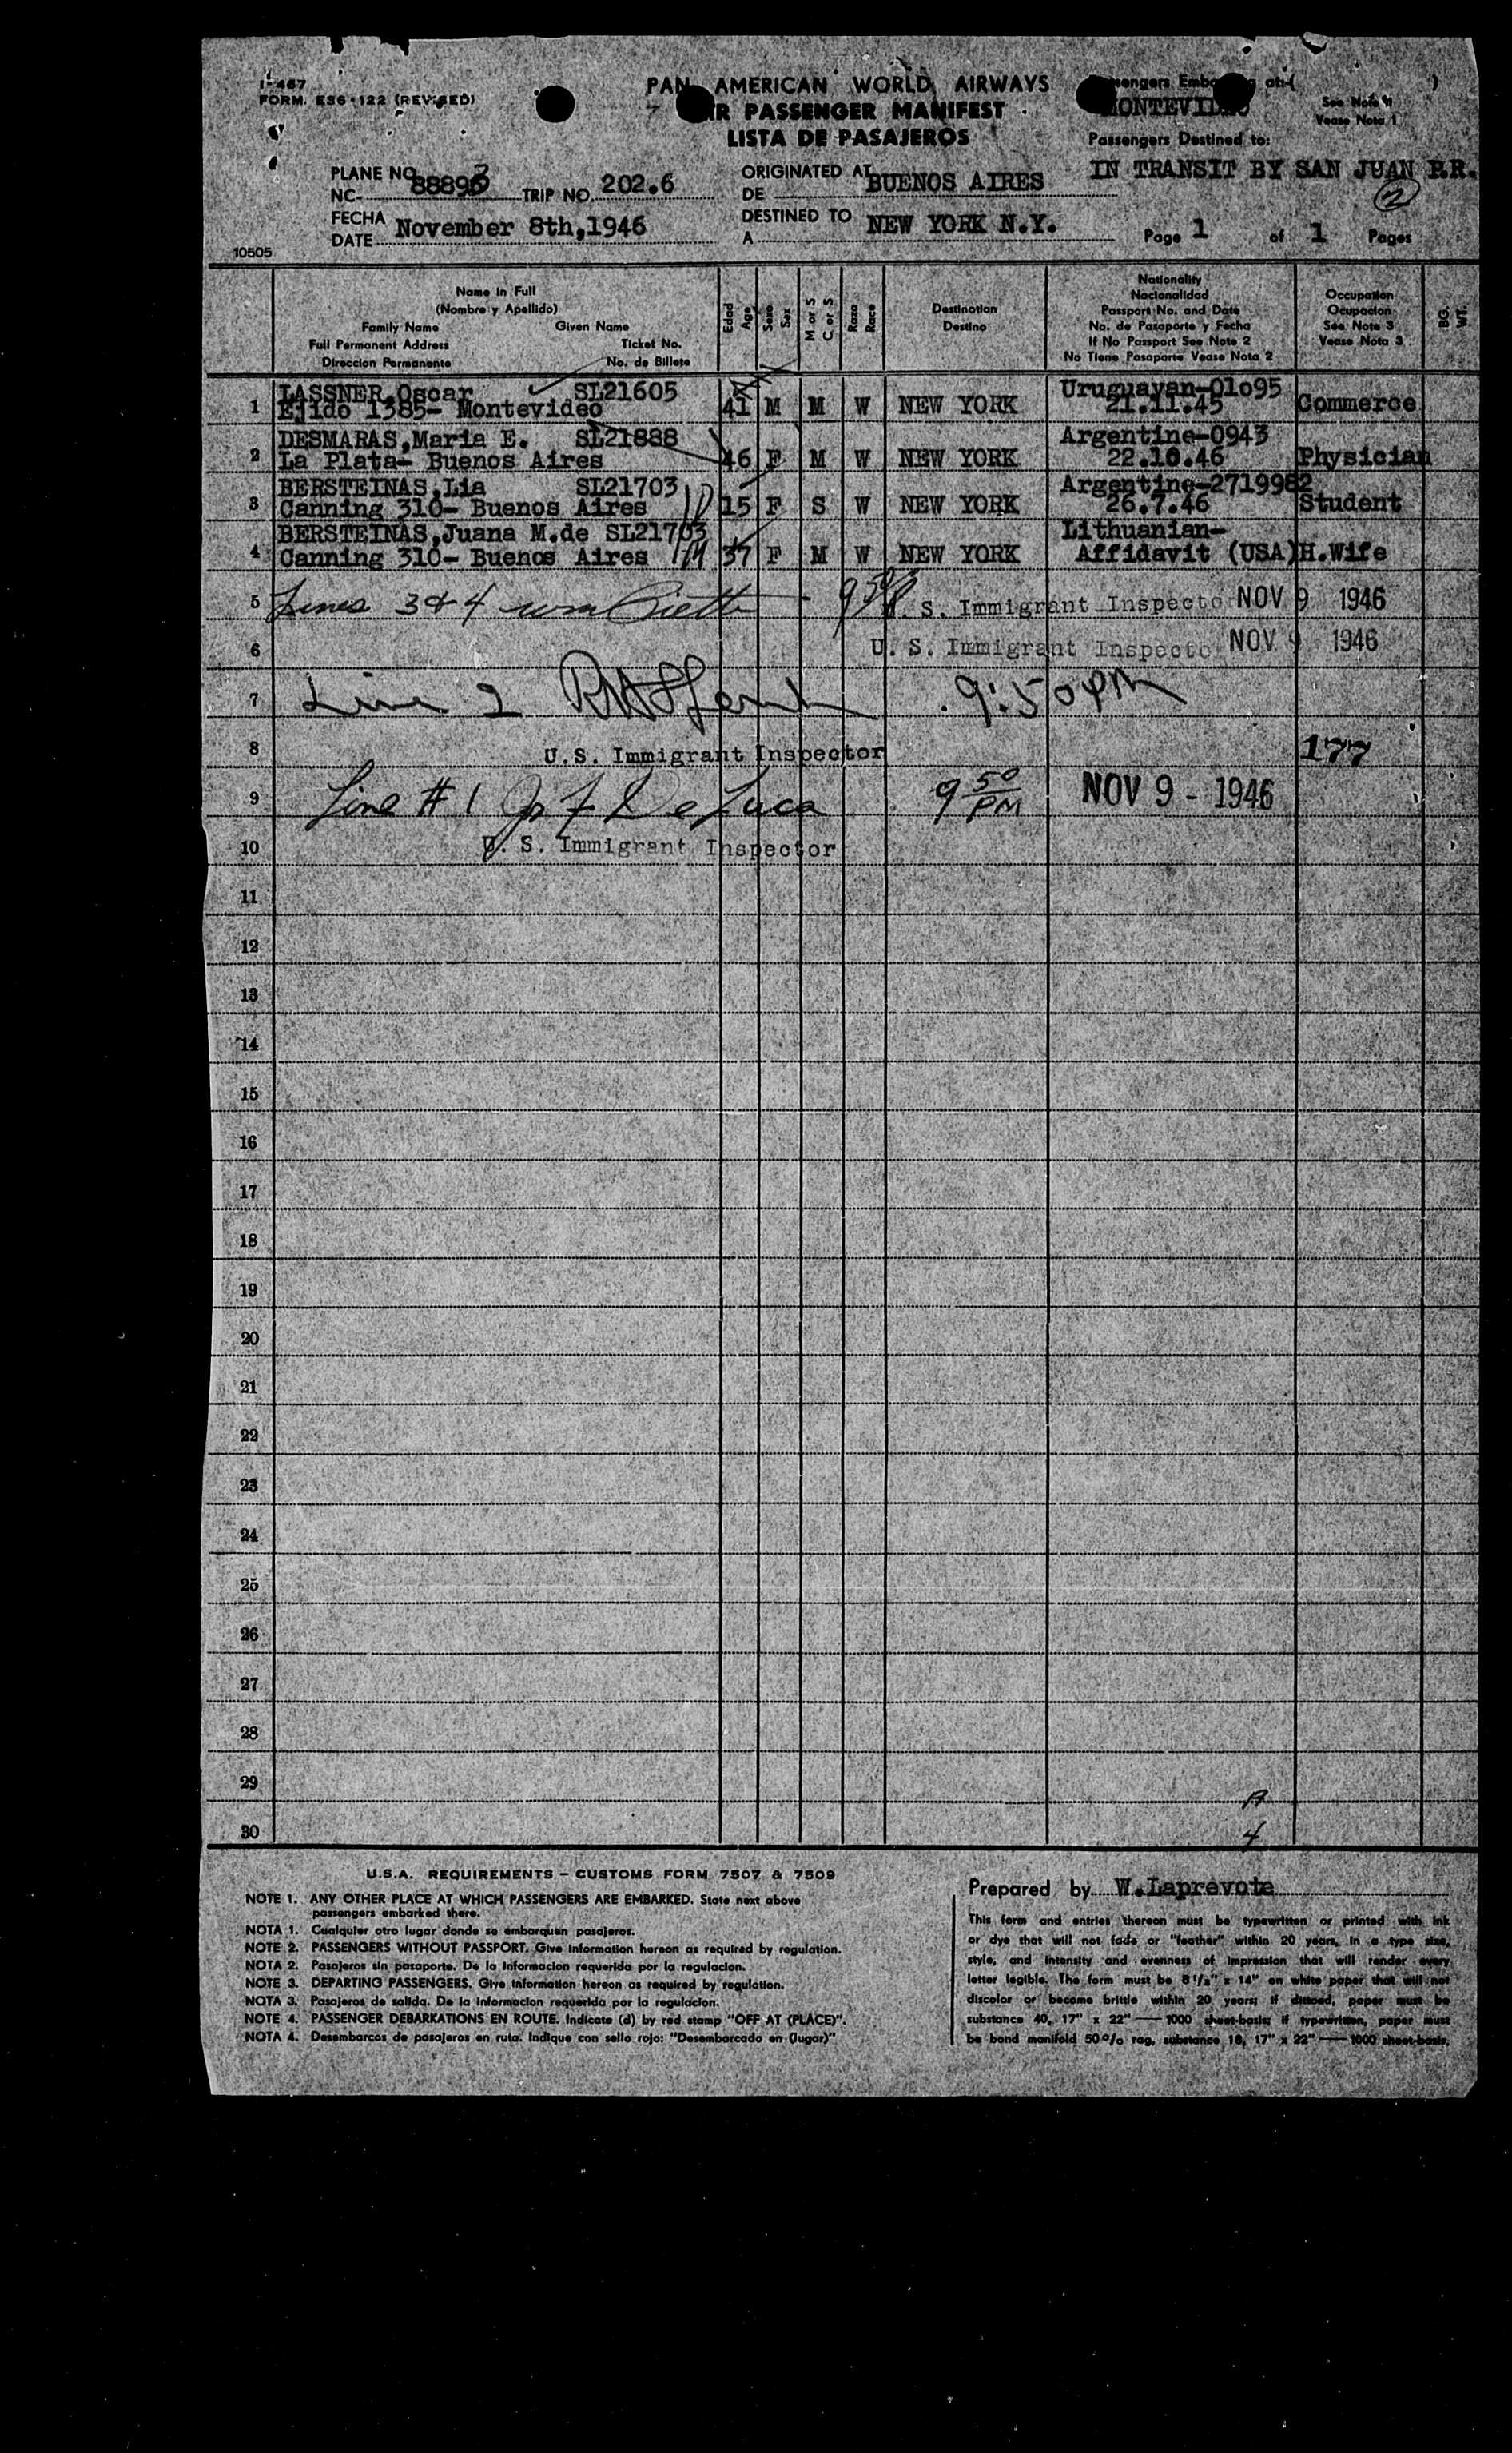 I-467
FORM. ES6-122 (REVISED)
PAN AMERICAN WORLD AIRWAYS
PASSENGER MANIFEST
LISTA DE PASAJEROS
See Note 1
Vease Nota 1
Passengers Destined to:
IN TRANSIT BY SAN JUAN P.R.
2
PLANE NO.
NC- TRIP NO. 202.6
ORIGINATED AT BUENOS AIRES
DE
FECHA
DATE November 8th,1946
DESTINED TO NEW YORK N.Y.
A
Page 1 of 1 Pages
10505
Name in Full
(Nombre y Apellido)
Family Name Given Name
Full Permanent Address Ticket No.
Direccion Permanente No. de Billete
Edad Age
Sexo Sex
M or S C or S
Raza Race
Destination
Destino
Nationality
Nacionalidad
Passport No. and Date
No. de Pasaporte y Fecha
If No Passport See Note 2
No Tiene Pasaporte Vease Nota 2
Occupation
Ocupacion
See Note 3
Vease Nota 3
BG. WT.
1 LASSNER,Oscar SL21605 41 M M W NEW YORK Uruguayan-01o95 Commerce
Ejido 1385- Montevideo 21.11.45
2 DESMARAS,Maria E. SL21838 46 F M W NEW YORK Argentine-0943 Physician
La Plata- Buenos Aires 22.10.46
3 BERSTEINAS,Lia SL21703 15 F S W NEW YORK Argentine-2719982 Student
Canning 310- Buenos Aires 26.7.46
4 BERSTEINAS,Juana M.de SL21703 37 F M W NEW YORK Lithuanian- H.Wife
Canning 310- Buenos Aires Affidavit (USA)
5 Lines 3 & 4 S. Immigrant Inspecto NOV 9 1946
6 U. S. Immigrant Inspecto NOV 9 1946
7 Line 2 9:50 PM
8 U.S. Immigrant Inspector 177
9 Line # 1 De Luca 9 50 PM NOV 9 - 1946
10 U. S. Immigrant Inspector
11
12
13
14
15
16
17
18
19
20
21
22
23
24
25
26
27
28
29
30
4
U.S.A. REQUIREMENTS – CUSTOMS FORM 7507 & 7509
NOTE 1. ANY OTHER PLACE AT WHICH PASSENGERS ARE EMBARKED. State next above
passengers embarked there.
NOTA 1. Cualquier otro lugar donde se embarquen pasajeros.
NOTE 2. PASSENGERS WITHOUT PASSPORT. Give information hereon as required by regulation.
NOTA 2. Pasajeros sin pasaporte. De la informacion requerida por la regulacion.
NOTE 3. DEPARTING PASSENGERS. Give information hereon as required by regulation.
NOTA 3. Pasajeros de salida. De la informacion requerida por la regulacion.
NOTE 4. PASSENGER DEBARKATIONS EN ROUTE. Indicate (d) by red stamp "OFF AT (PLACE)".
NOTA 4. Desembarcos de pasajeros en ruta. Indique con sello rojo: "Desembarcado en (lugar)"
Prepared by W.Laprevote
This form and entries thereon must be typewritten or printed with ink
or dye that will not fade or "feather" within 20 years, in a type size,
style, and intensity and evenness of impression that will render every
letter legible. The form must be 8 1/2" x 14" on white paper that will not
discolor or become brittle within 20 years; if dittoed, paper must be
substance 40, 17" x 22" — 1000 sheet-basis; if typewritten, paper must
be bond manifold 50% rag, substance 18, 17" x 22" — 1000 sheet-basis.